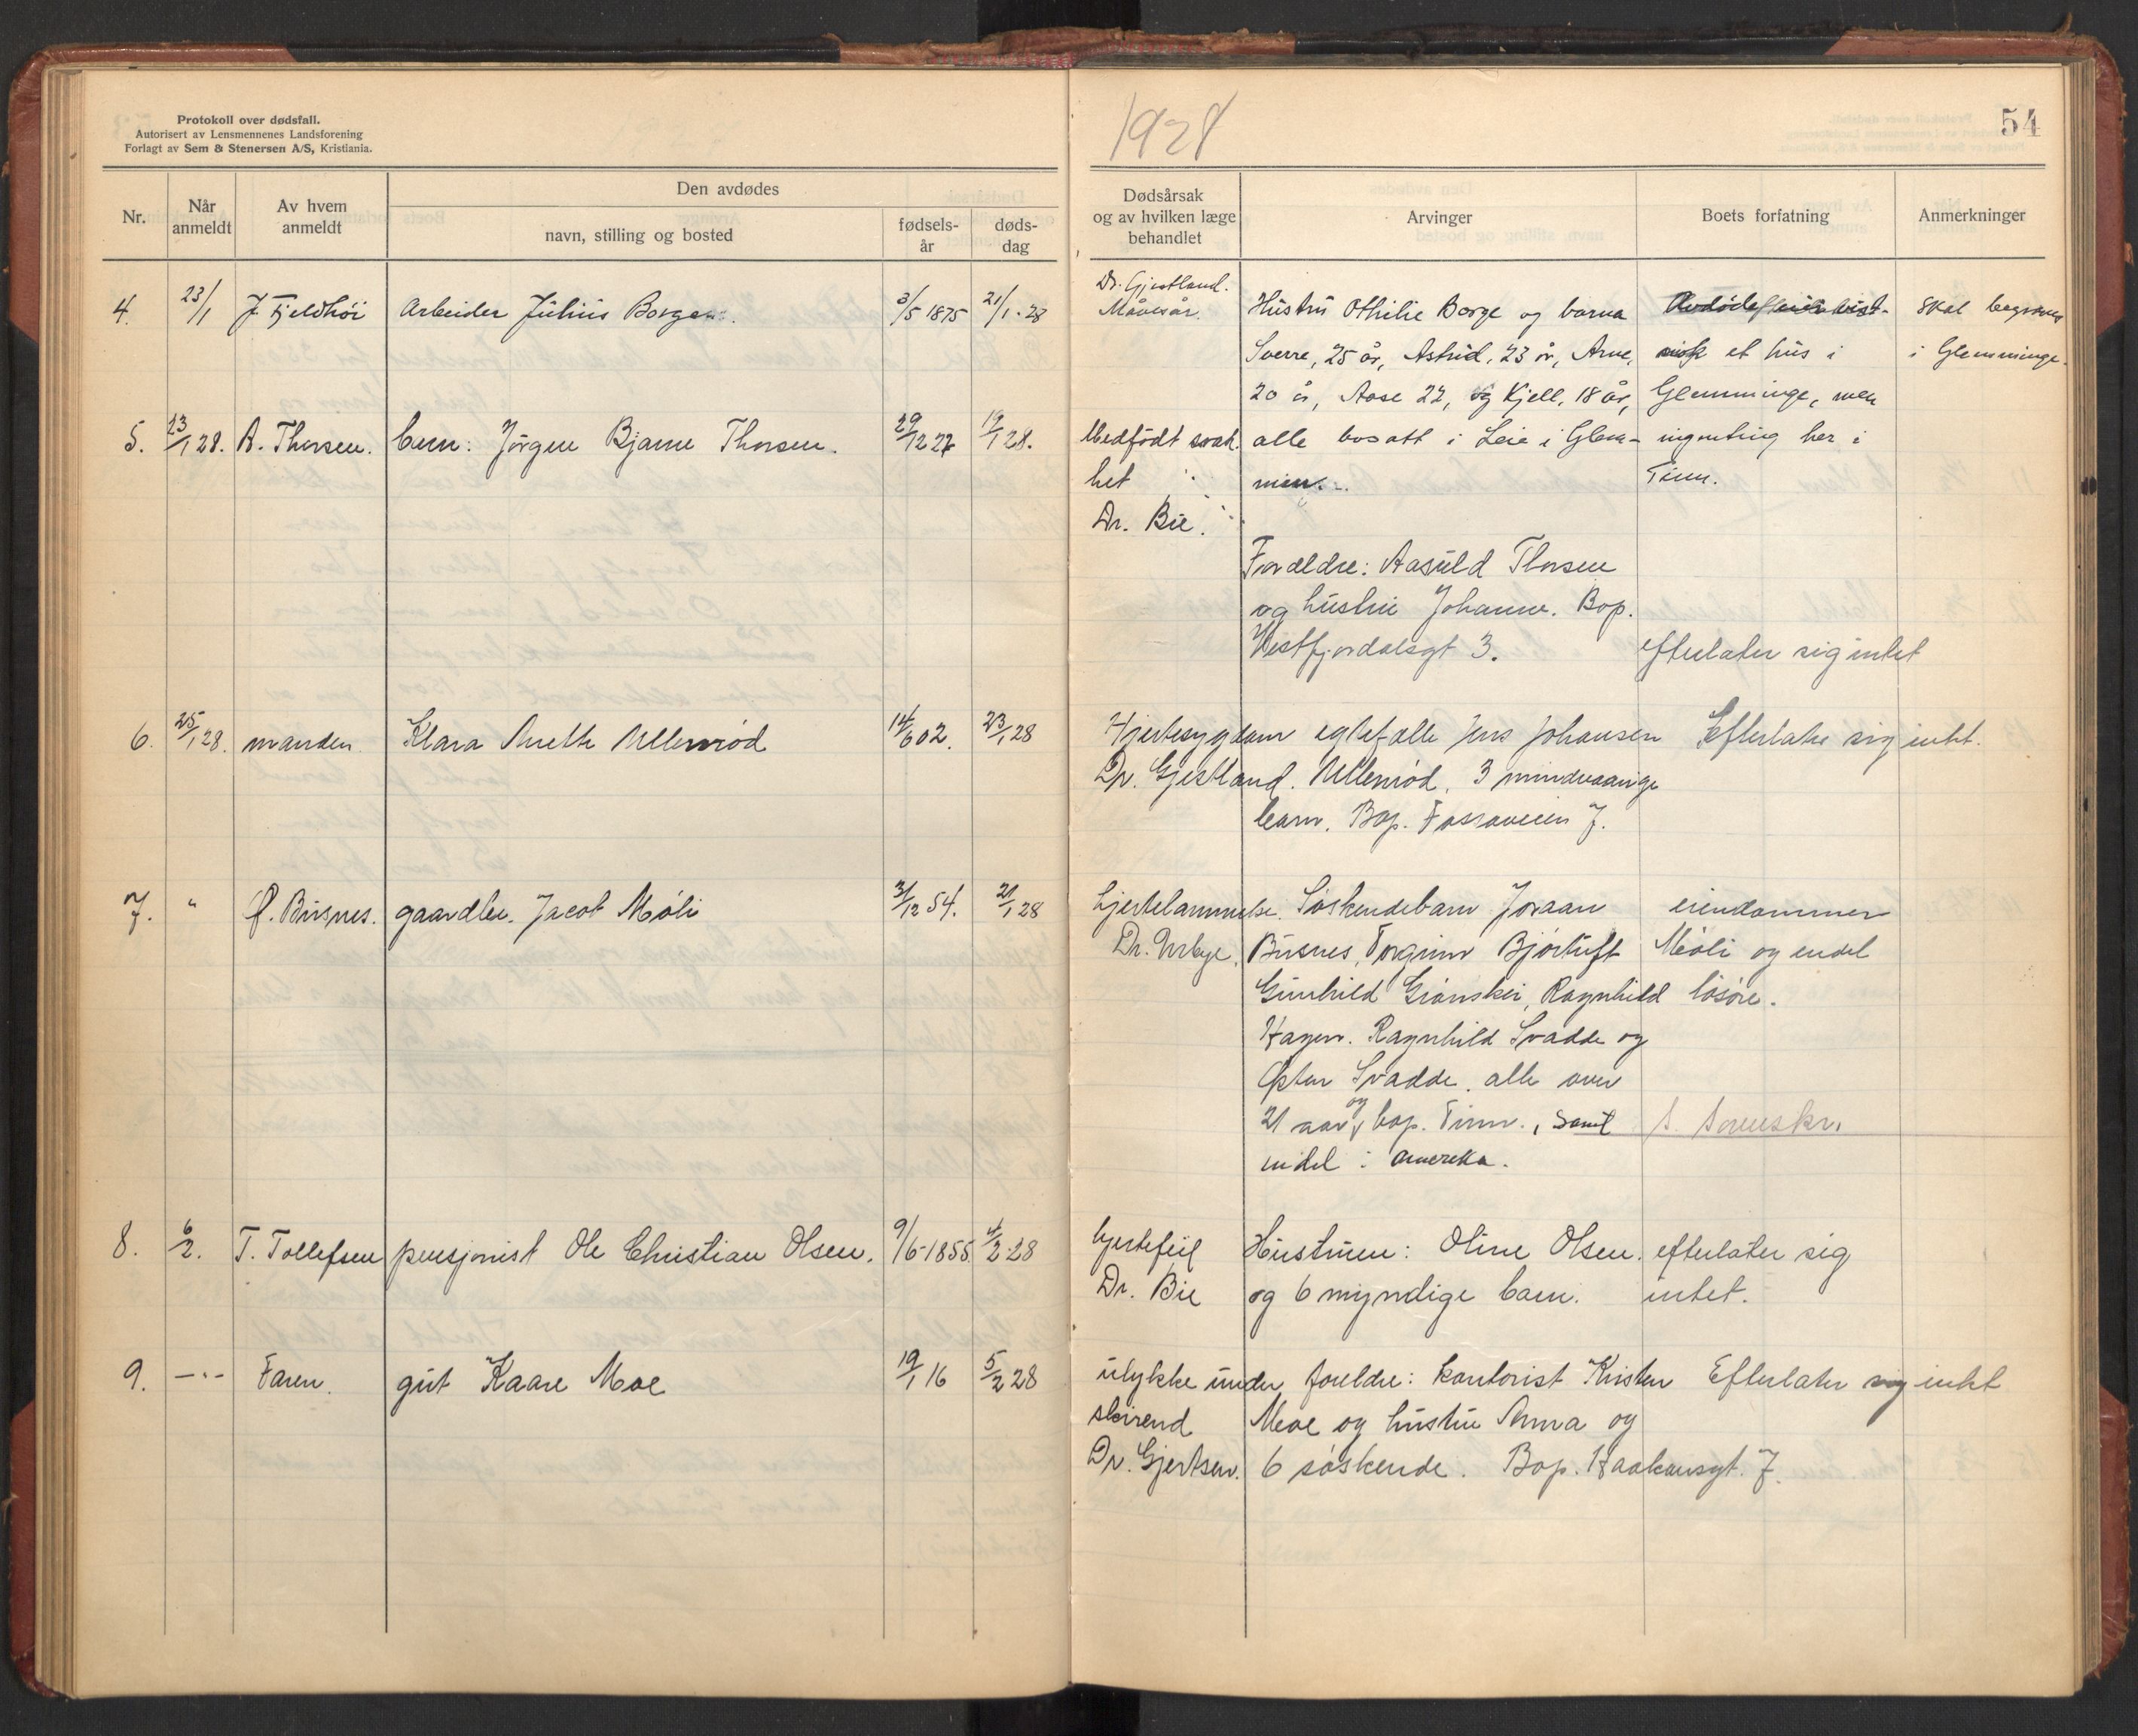 Protokoll over dødsfall.
Autorisert av Lensmennenes Landsforening
Forlagt av Sem & Stenersen A/S, Kristiania.
Nr.
Når anmeldt
Av hvem anmeldt
Den avdødes
navn, stilling og bosted
fødsels-år
døds-dag
4. 23/1 J. Fjeldhöi Arbeider Julius Borgen. 3/5 1875 21/1-28
5. 23/1 28. A. Thorsen. barn: Jörgen Bjarne Thorsen. 29/12 27 19/1 28.
6. 25/1 28. manden Klara Anette Ullenröd 14/6 02. 23/1 28
7. " J. Busnes. gaardbr. Jacob Möli 3/12 54. 21/1 28
8. 6/2. T. Tollefsen pensjonist Ole Christian Olsen. 9/6-1855 4/2 28
9. —"— Faren. gut Kaare Moe 19/1 16 5/2 28
1928
54
Dødsårsak
og av hvilken læge
behandlet
Arvinger
Boets forfatning
Anmerkninger
Dr. Gjestland.
Mavesår. Hustru Othilie Borge og barna
Sverre, 25 år, Astrid, 23 år, Arne, et hus i
20 år, Aase 22, og Kjell, 18 år, Glemminge, men
alle bosatt i Leie i Glem- ingenting her i
men. Tinn.
Skal begraves
i Glemminge.
Medfödt svak-
het
Dr. Bie.
Foreldre: Aasuld Thorsen
og hustru Johanne. Bop.
Vestfjordalsgt 3. efterlater sig intet
Hjertesygdom egtefelle Jens Johansen Efterlater sig intet.
Dr. Gjestland. Ullenröd, 3 mindreaarige
barn. Bop. Fossoveien 7.
hjertelammelse. Söskendebarn Joraan eiendommen
Dr. Urbye. Busnes, Torginn Björtuft Möli og endel
Gunhild Grönskei, Ragnhild lösöre.
Hagen. Ragnhild Svadde og
Östen Svadde. alle over
21 aar, og bop. Tinn., samt
endel i Amerika.
hjertefeil Hustruen: Oline Olsen. efterlater sig
Dr. Bie og 6 myndige barn. intet.
ulykke under foreldre: kontorist Kristen Efterlater sig intet
skirend Moe og hustru Anna og
Dr. Gjertsen. 6 söskende. Bop. Haakonsgt. 7.